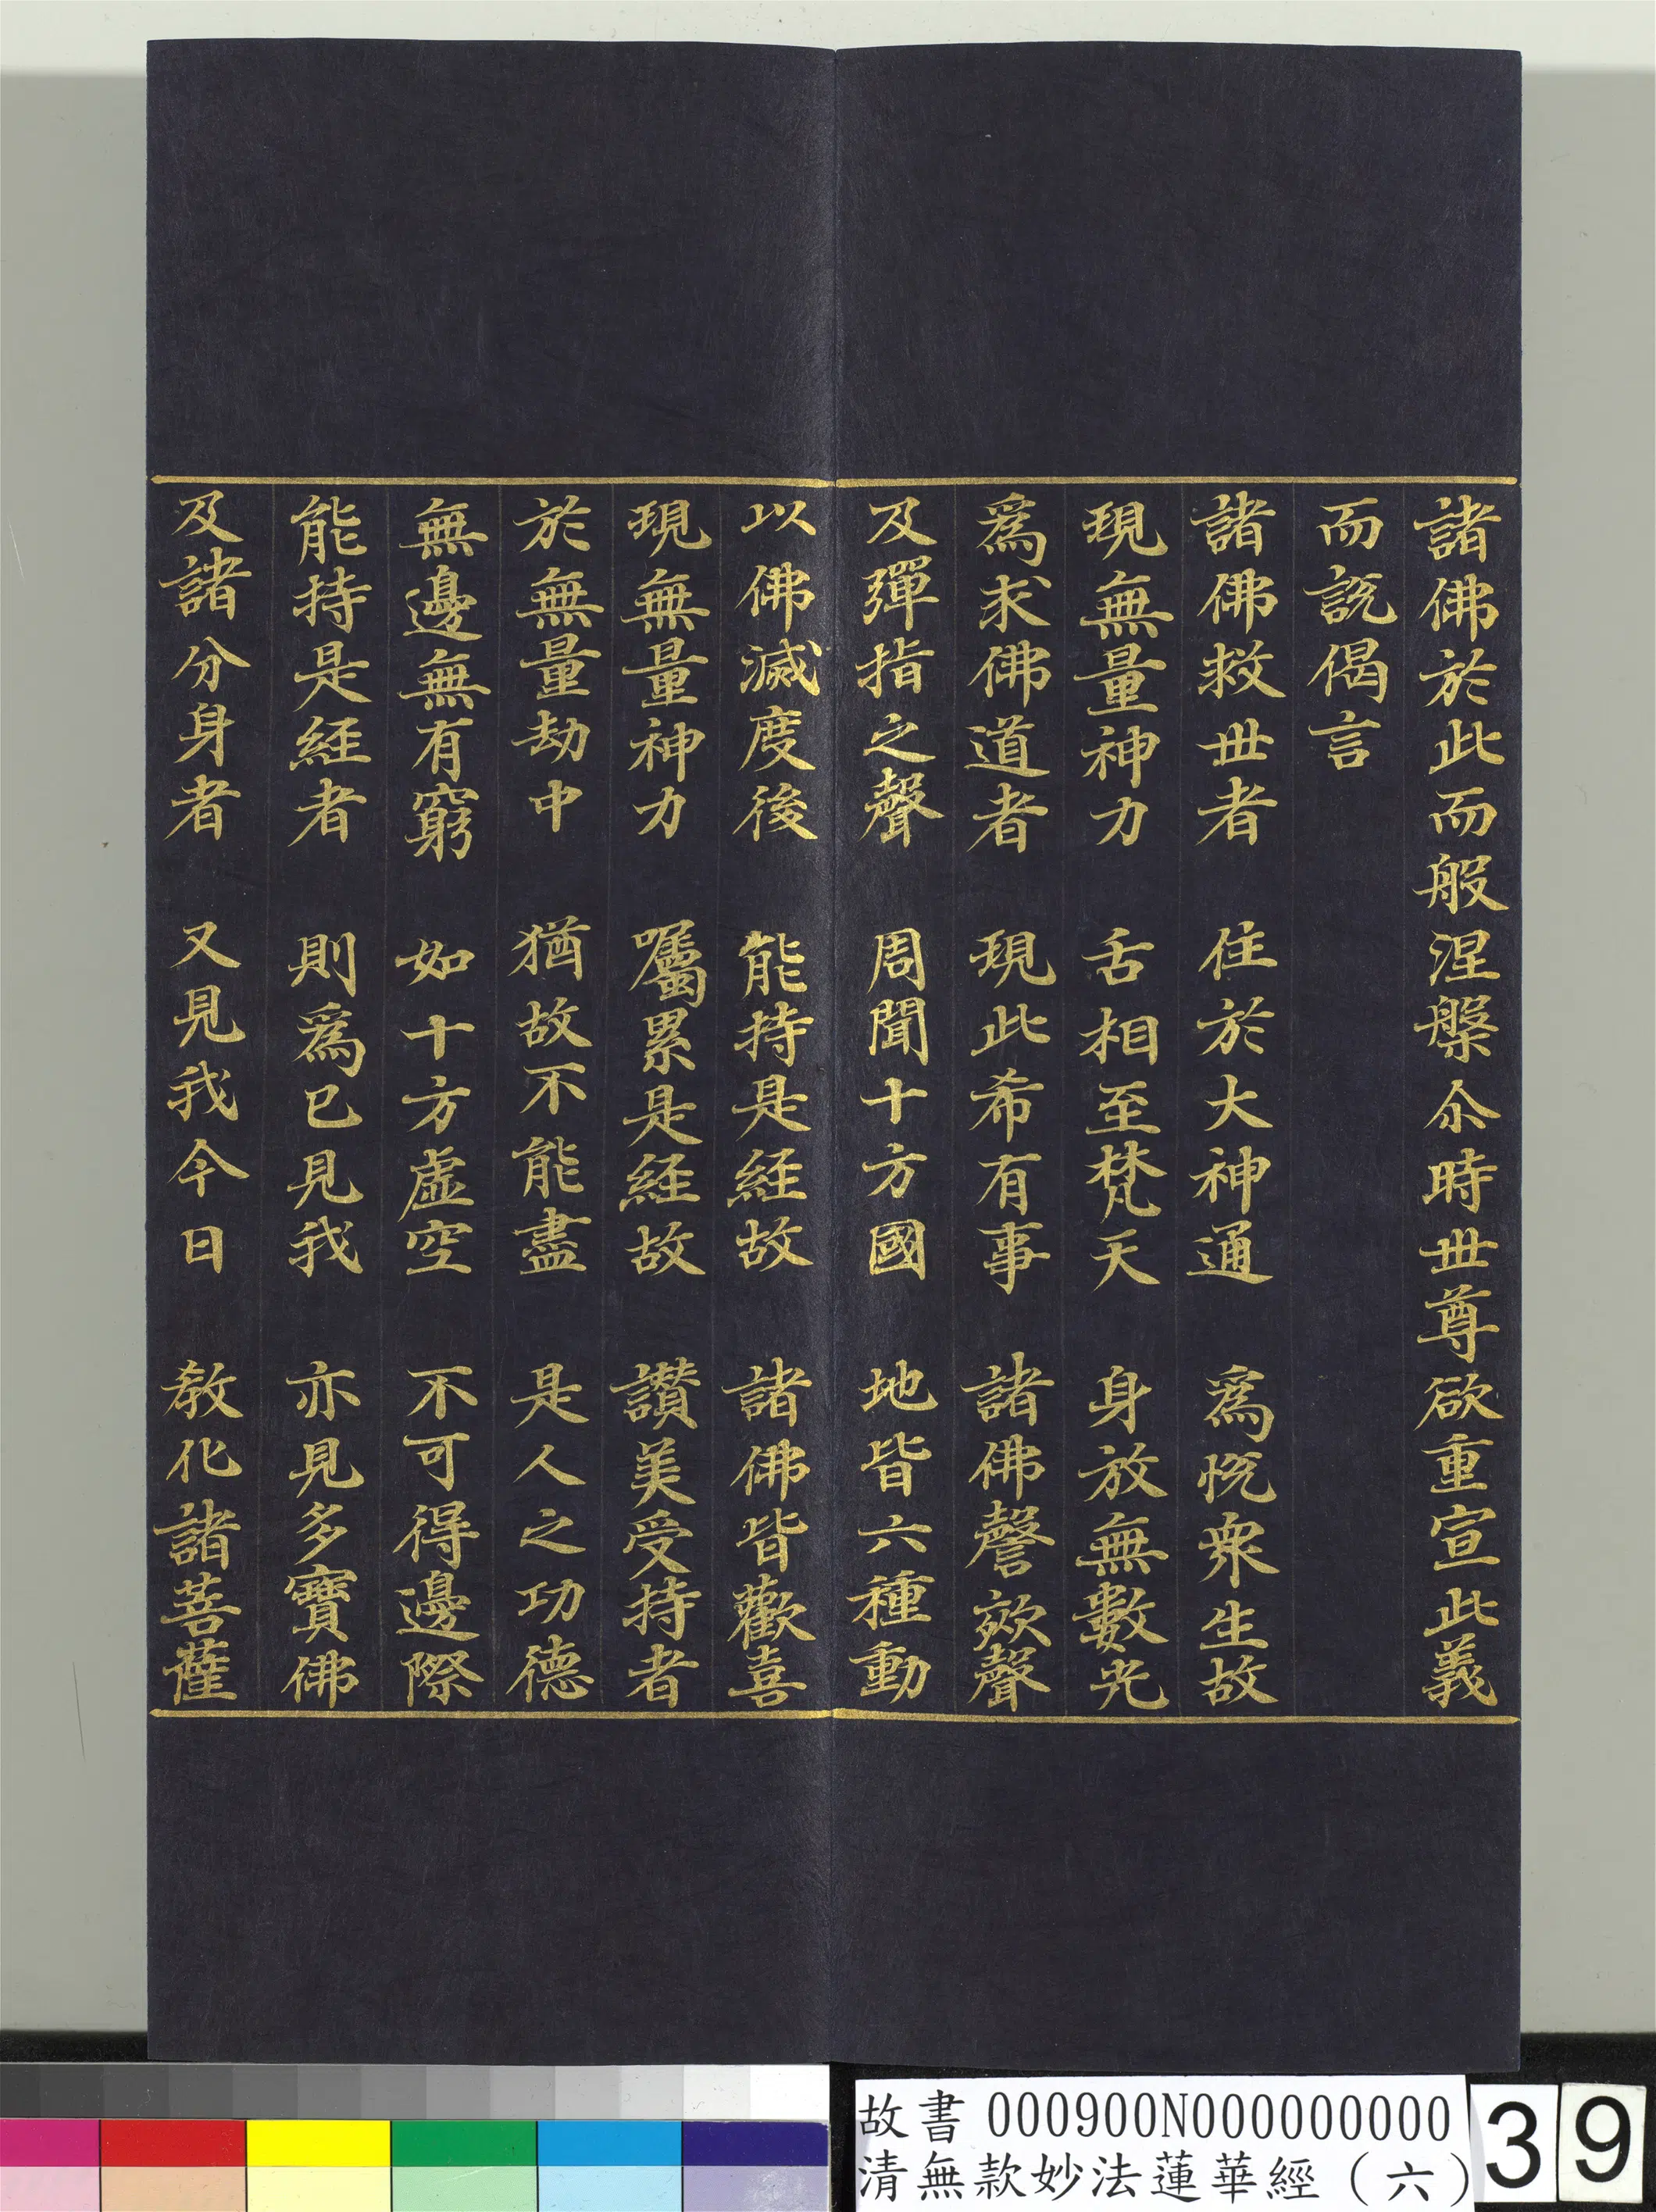 諸佛於此而般涅槃尒時世尊欲重宣此義
而説偈言
諸佛救世者　住於大神通　為悅衆生故
現無量神力　舌相至梵天　身放無數光
為求佛道者　現此希有事　諸佛謦欬聲
及彈指之聲　周聞十方國　地皆六種動
以佛滅度後　能持是經故　諸佛皆歡喜
現無量神力　囑累是經故　讚美受持者
於無量劫中　猶故不能盡　是人之功德
無邊無有窮　如十方虛空　不可得邊際
能持是經者　則為已見我　亦見多寶佛
及諸分身者　又見我今日　教化諸菩薩
故書 000900N000000000
清無款妙法蓮華經（六）
39